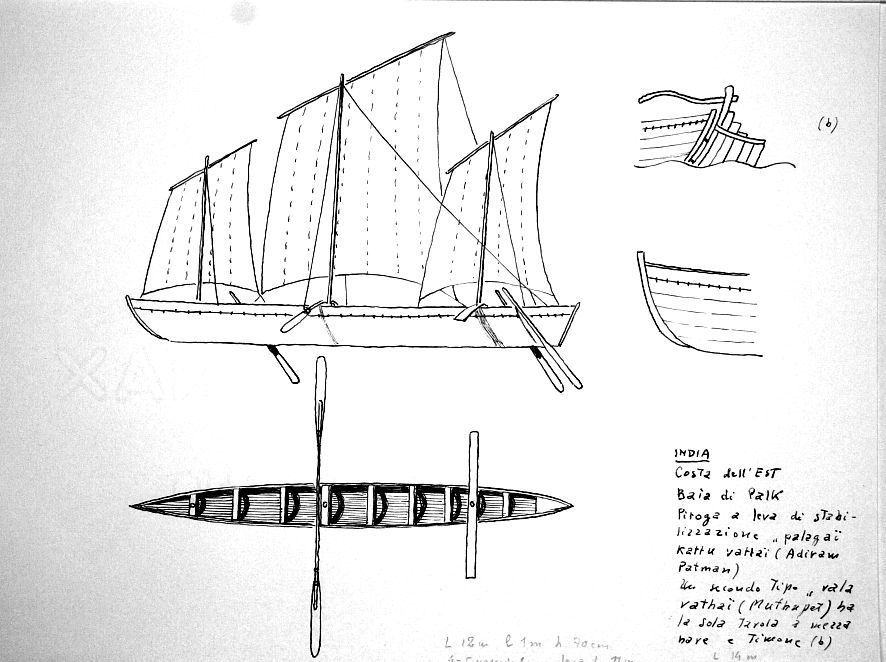 (b)
INDIA
Costa dell'EST
Baia di Palk
Piroga a leva di stabi-
lizzazione „palagaï
kattu vattai (Adiram
Patman)
Un secondo Tipo „vala
vathaï (Muthupet) ha
la sola Tavola a mezza
nave e Timone (b)
L 12m l 1m h 70cm
L 14 m